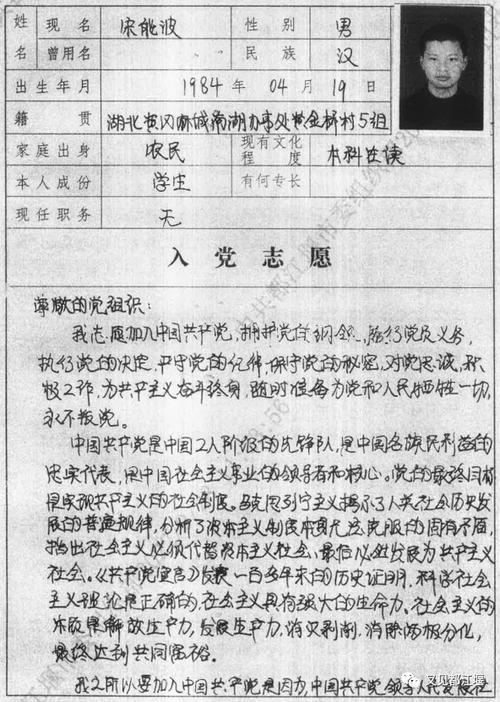 姓 现名 宋能波 性别 男
名 曾用名 民族 汉
出生年月 1984 年 04 月 19 日
籍贯 湖北黄冈 南湖办事处黄金桥村5组
家庭出身 农民 现有文化程度 本科在读
本人成份 学生 有何专长
现任职务 无
入党志愿
尊敬的党组织:
我志愿加入中国共产党,拥护党的纲领,履行党员义务,
执行党的决定,严守党的纪律,保守党的秘密,对党忠诚,积
极工作,为共产主义奋斗终身,随时准备为党和人民牺牲一切,
永不叛党。
中国共产党是中国工人阶级的先锋队,是中国各族人民利益的
忠实代表,是中国社会主义事业的领导者和核心。党的最终目标
是实现共产主义的社会制度。马克思列宁主义揭示了人类社会历史发
展的普遍规律,分析了资本主义制度本身无法克服的固有矛盾,
指出社会主义必须代替资本主义社会、最后必然发展为共产主义
社会。《共产党宣言》发表一百多年来的历史证明,科学社会
主义理论是正确的,社会主义具有强大的生命力。社会主义的
本质是解放生产力,发展生产力,消灭剥削,消除两极分化,
最终达到共同富裕。
我之所以要加入中国共产党,是因为,中国共产党领导人民发展在
又见都江堰